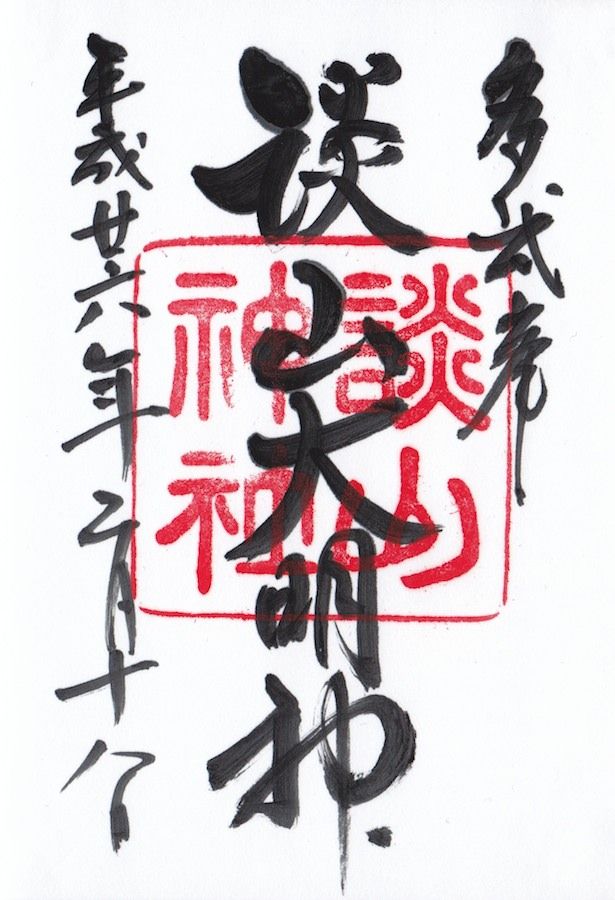 多武峯
談山大明神
平成廿六年二月十八日
談山
神社